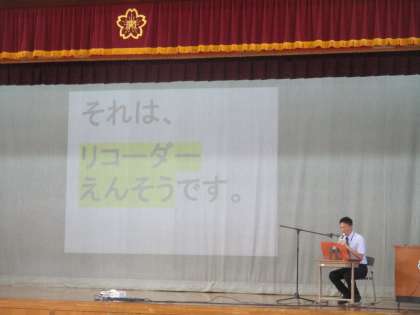 それは、
リコーダー
えんそうです。